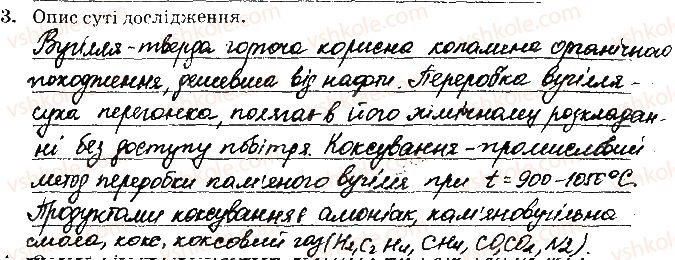 3. Опис суті дослідження.
Вугілля-тверда горюча корисна копалина органічного
походження, дешевша від нафти. Переробка вугілля-
суха перегонка, полягає в його хімічному розкладан-
ні без доступу повітря. Коксування-промисловий
метод переробки кам'яного вугілля при t=900-1050°C.
Продуктами коксування є амоніак, кам'яновугільна
смола, кокс, коксовий газ (H2, C2H4, CH4, CO, CO2, N2).